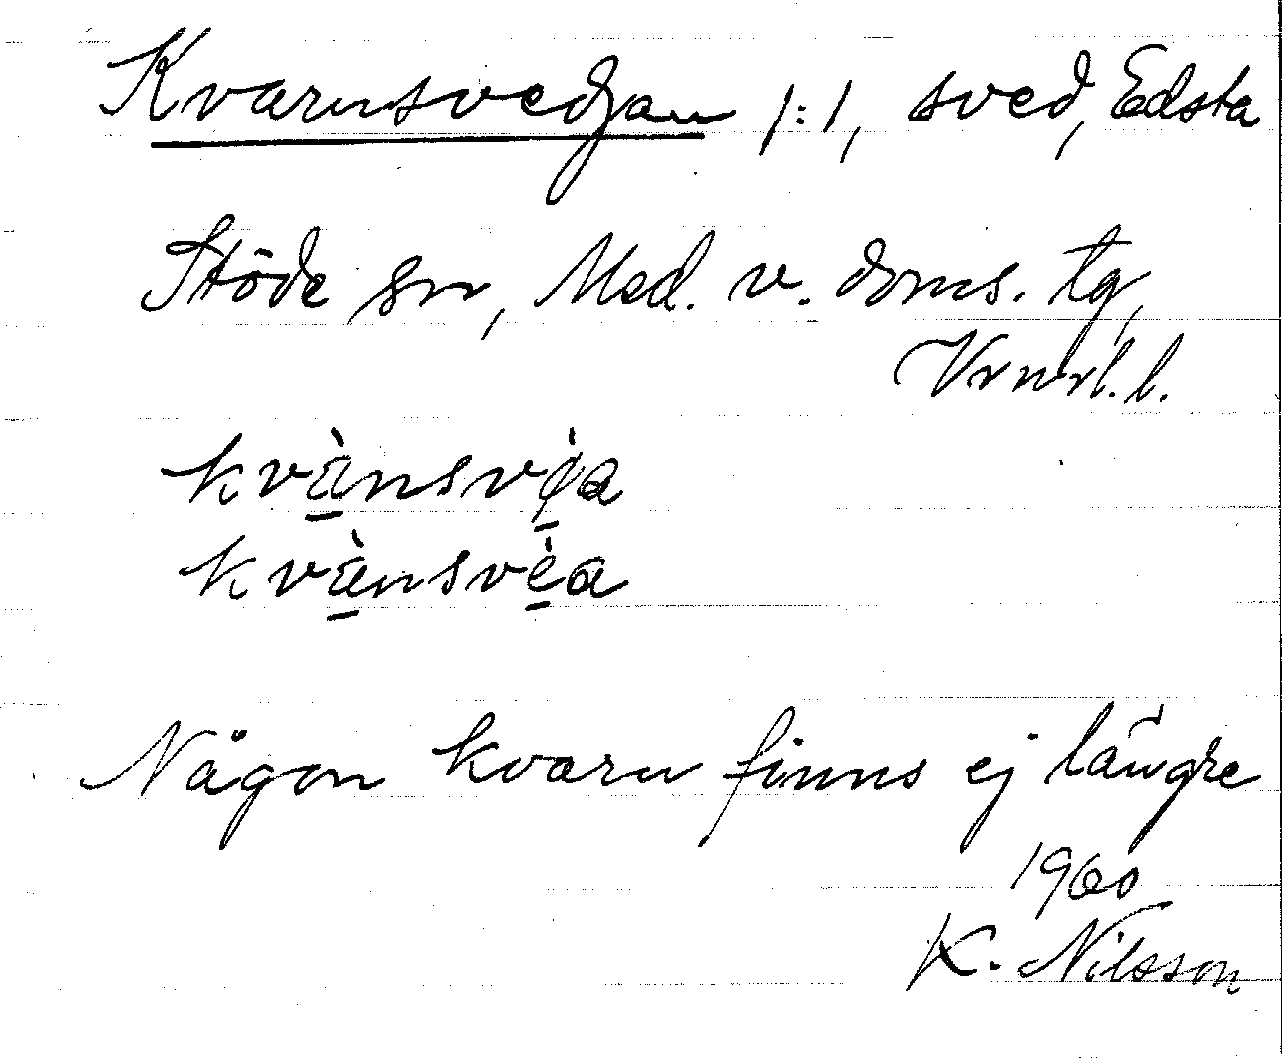 Kvarnsvedjan 1:1, sved, Edsta
Stöde sn, Med. v. doms. tg,
Vrnrl. l.
kvä̀nsvèa
kvä̀nsvèa
Någon kvarn finns ej längre
1960
K. Nilsson